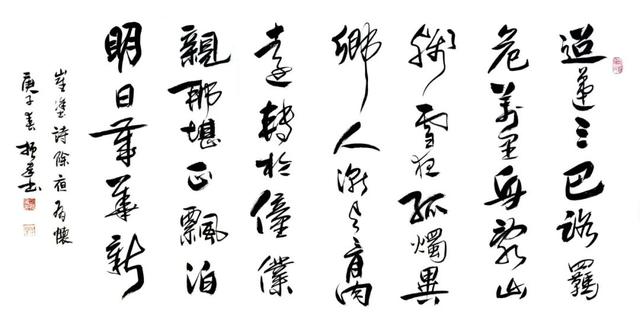 迢遞三巴路羈
危萬里身亂山
殘雪夜孤燭異
鄉人漸與骨肉
遠轉於僮僕
親那堪正飄泊
明日歲華新
崔塗詩除夜有懷
庚子春振书